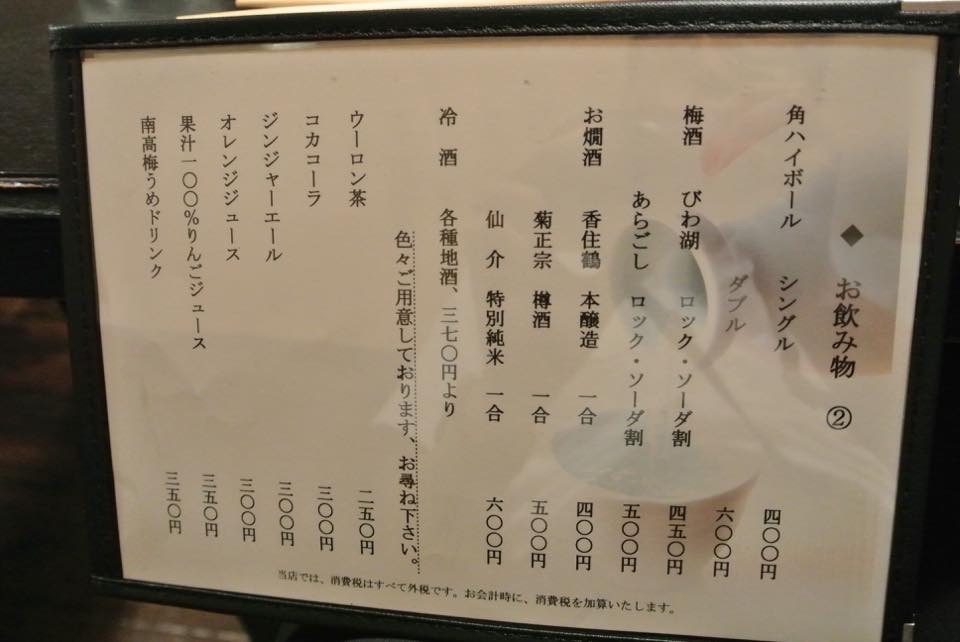 ◆ お飲み物 ②
角ハイボール シングル 四〇〇円
ダブル 六〇〇円
梅酒 びわ湖 ロック・ソーダ割 四五〇円
あらごし ロック・ソーダ割 五〇〇円
お燗酒 香住鶴 本醸造 一合 四〇〇円
菊正宗 樽酒 一合 五〇〇円
仙介 特別純米 一合 六〇〇円
冷酒 各種地酒、三七〇円より
色々ご用意しております、お尋ね下さい。
ウーロン茶 二五〇円
コカコーラ 三〇〇円
ジンジャーエール 三〇〇円
オレンジジュース 三〇〇円
果汁一〇〇％りんごジュース 三五〇円
南高梅うめドリンク 三五〇円
当店では、消費税はすべて外税です。お会計時に、消費税を加算いたします。